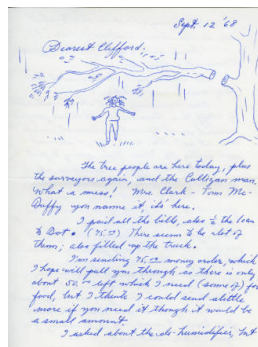 Sept. 12 '68
Dearest Clifford:
The tree people are here today, plus
the surveyors again, and the Culligan man.
What a mess! Mrs Clark - Tom Mc-
Duffy you name it, its here.
I paid all the bills, also the loan
to Dot. (75.00) There seems to be a lot of
them; also filled up the truck.
I'm sending 75.00 money order, which
I hope will pull you through as there is only
about 50.00 left which I need (some of) for
food, but I think I could send a little
more if you need it though it would be
a small amount.
I asked about the de-humidifier, but